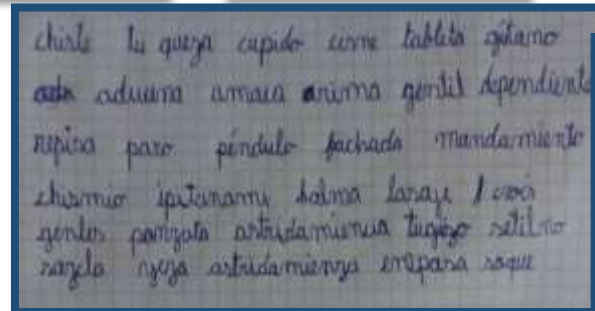 chiste tu queza cupido cisne tableta gitano
aduana amaca anima gentil dependiente
repisa paro péndulo fachada mandamiento
chismio ipitanamy balma
gentes panzota astridamiencia tugizo setilno
razela astridamienza enepara saque